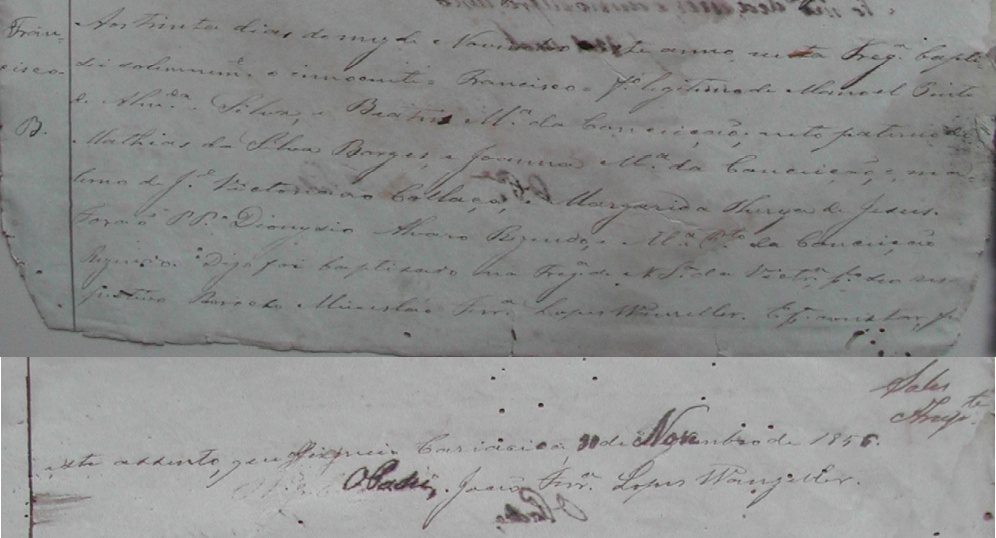 Fran-
cisco
B.
Aos trinta dias do mez de Novembro este anno, nesta Freg.ª bapti-
sei solemnem.e o innocente Francisco f.º legitimo de Manoel Pinto
d Alm.da Silva, e Beatris M.ª da Conceiçaõ; neto paterno de
Mathias da Silva Borges, e Joanna M.ª da Conceiçaõ, e ma-
terno de J.e Victorino Collaço, e Margarida Thereza de Jesus.
Foraõ PP.os Dionysio Alvaro Rozendo, e M.ª da Conceiçaõ
Digo foi baptisado na Freg.ª de N. S.ª da Victr.ª p.lo seo res-
pectivo Parocho Miceslão Ferr.ª Lopes Wanzeller. E p.ª constar, fiz
Sales
este assento, que assigno. Cariacica, 30 de Novembro de 1846.
O Padre, João Ferr.ª Lopes Wanzeller.